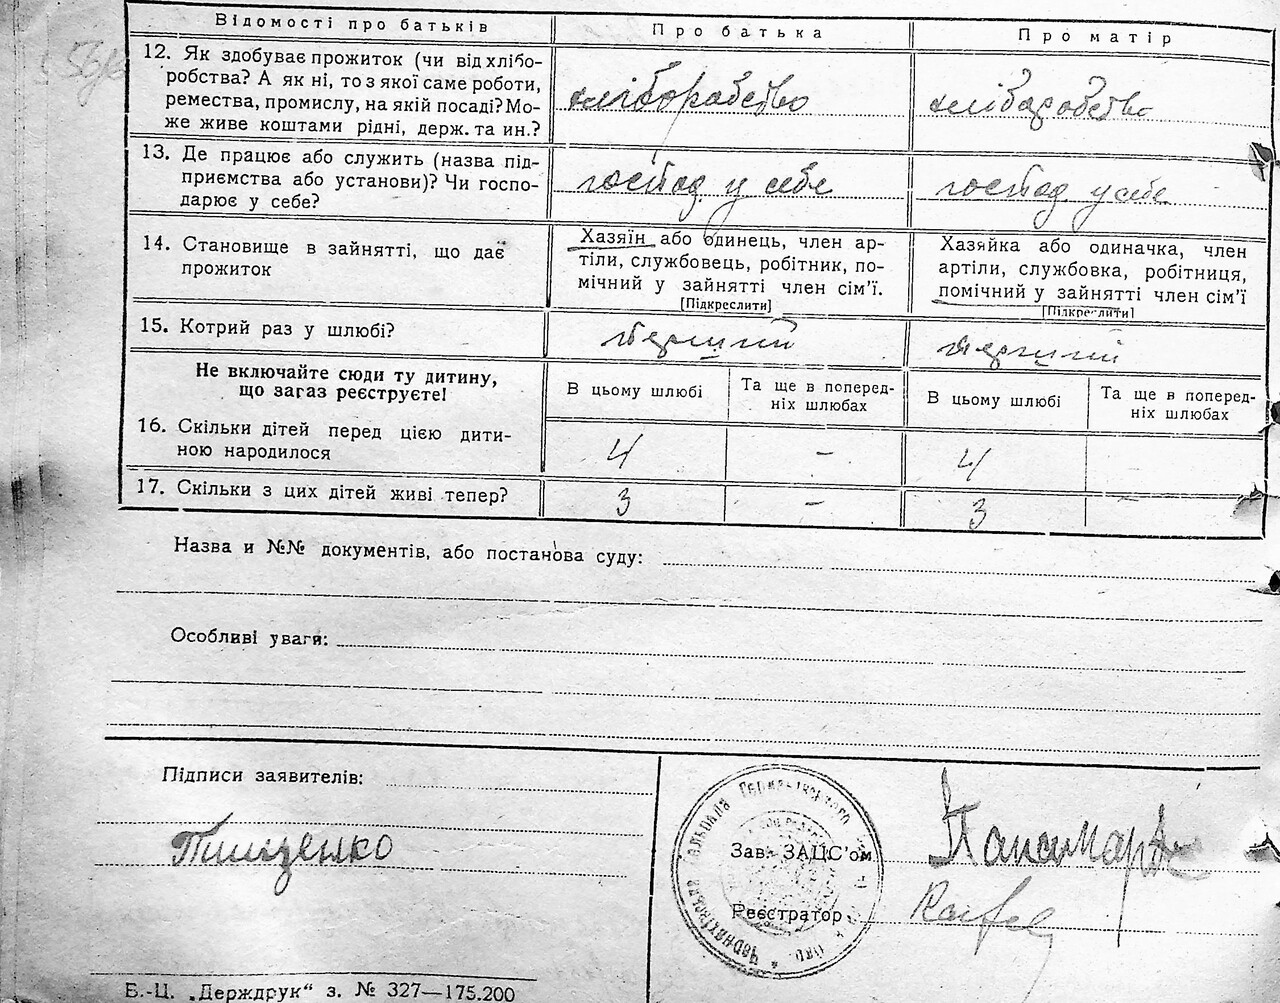 Відомості про батьків Про батька Про матір
12. Як здобуває прожиток (чи від хлібо-
робства? А як ні, то з якої саме роботи,
ремества, промислу, на якій посаді? Мо-
же живе коштами рідні, держ. та ин.?
хліборобство хліборобство
13. Де працює або служить (назва під-
приємства або установи)? Чи госпо-
дарює у себе?
господ у себе господ у себе
14. Становище в зайнятті, що дає
прожиток
Хазяїн або одинець, член ар-
тіли, службовець, робітник, по-
мічний у зайнятті член сім'ї.
[Підкреслити]
Хазяйка або одиначка, член
артіли, службовка, робітниця,
помічний у зайнятті член сім'ї
[Підкреслити]
15. Котрий раз у шлюбі?
Не включайте сюди ту дитину,
що загаз реєструєте!
В цьому шлюбі
Та ще в поперед-
ніх шлюбах
В цьому шлюбі
Та ще в поперед-
ніх шлюбах
16. Скільки дітей перед цією дити-
ною народилося
4 – 4
17. Скільки з цих дітей живі тепер? 3 – 3
Назва и №№ документів, або постанова суду:
Особливі уваги:
Підписи заявителів:
Тищенко
Зав. ЗАЦС'ом
Реєстратор
Б.-Ц. „Держдрук“ з. № 327—175.200